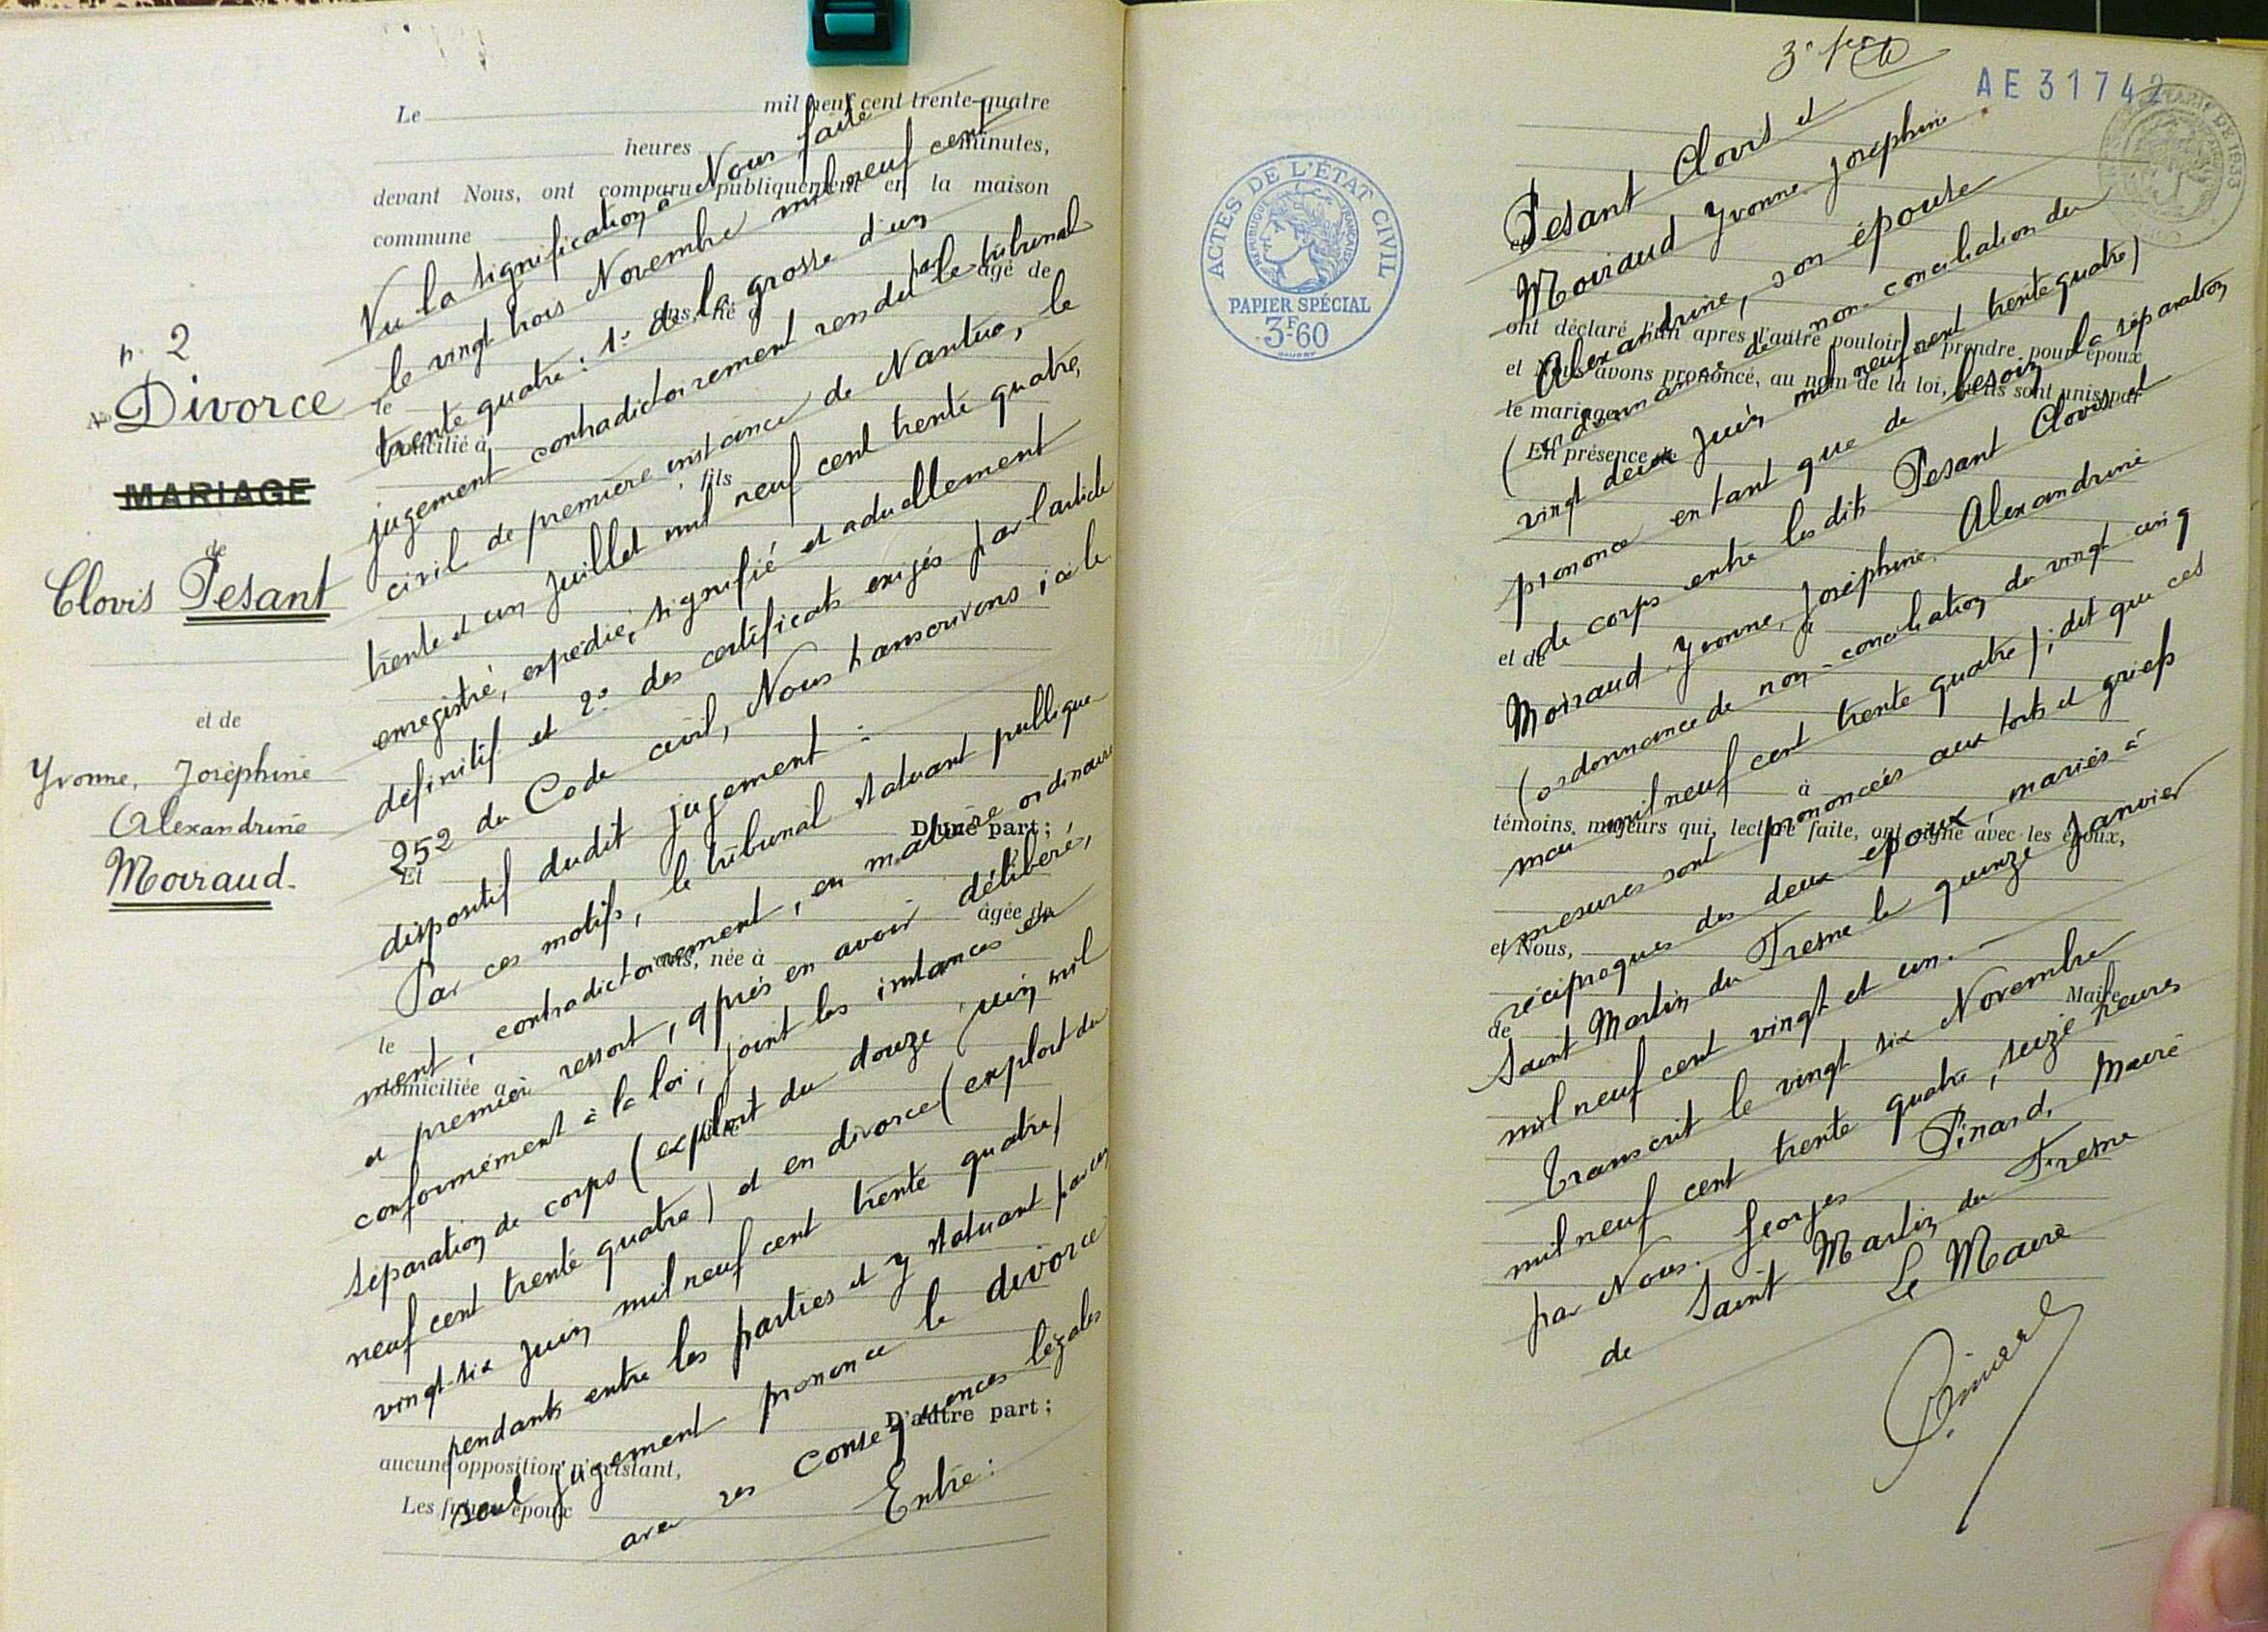 n. 2
No Divorce
MARIAGE
de
Clovis Pesant
et de
Yvonne, Joséphine
Alexandrine
Moiraud.
Le mil neuf cent trente-quatre
heures minutes,
devant Nous, ont comparu publiquement en la maison
commune
âgé de
ans, né à
le
domicilié à
fils
D'une part;
Et
âgée de
ans, née à
le
domiciliée à
fille
D'autre part;
aucune opposition n'existant,
Les futurs époux
Vu la signification à Nous faite
le vingt trois Novembre mil neuf cent
trente quatre : 1° de la grosse d'un
jugement contradictoirement rendu par le tribunal
civil de première instance de Nantua, le
trente et un Juillet mil neuf cent trente quatre,
enregistré, expédié, signifié et actuellement
définitif et 2° des certificats exigés par l'article
252 du Code civil, Nous transcrivons ici le
dispositif dudit jugement :
Par ces motifs, le tribunal statuant publique
ment, contradictoirement, en matière ordinaire
et premier ressort, après en avoir délibéré,
conformément à la loi; joint les instances en
séparation de corps (exploit du douze juin mil
neuf cent trente quatre) et en divorce (exploit du
vingt-six juin mil neuf cent trente quatre)
pendants entre les parties et y statuant par un
seul jugement prononce le divorce
avec ses conséquences légales
Entre :
ACTES DE L'ÉTAT CIVIL
RÉPUBLIQUE FRANÇAISE
PAPIER SPÉCIAL
3F-60
AE 31742
ont déclaré l'un après l'autre vouloir se prendre pour époux
et Nous avons prononcé, au nom de la loi, qu'ils sont unis par
le mariage.
En présence de
à
et de
à
témoins majeurs qui, lecture faite, ont signé avec les époux,
et Nous,
Maire
de
Pesant Clovis et
Moiraud Yvonne Joséphine
Alexandrine, son épouse
(ordonnance de non-conciliation du
vingt deux Juin mil neuf cent trente quatre)
prononce en tant que de besoin la séparation
de corps entre les dits Pesant Clovis et
Moiraud Yvonne, Joséphine, Alexandrine
(ordonnance de non-conciliation du vingt cinq
mai mil neuf cent trente quatre); dit que ces
mesures sont prononcées aux torts et griefs
réciproques des deux époux, mariés à
Saint Martin du Fresne le quinze Janvier
mil neuf cent vingt et un.
Transcrit le vingt six Novembre
mil neuf cent trente quatre, seize heures
par Nous. Georges Pinard, Maire
de Saint Martin du Fresne
Le Maire